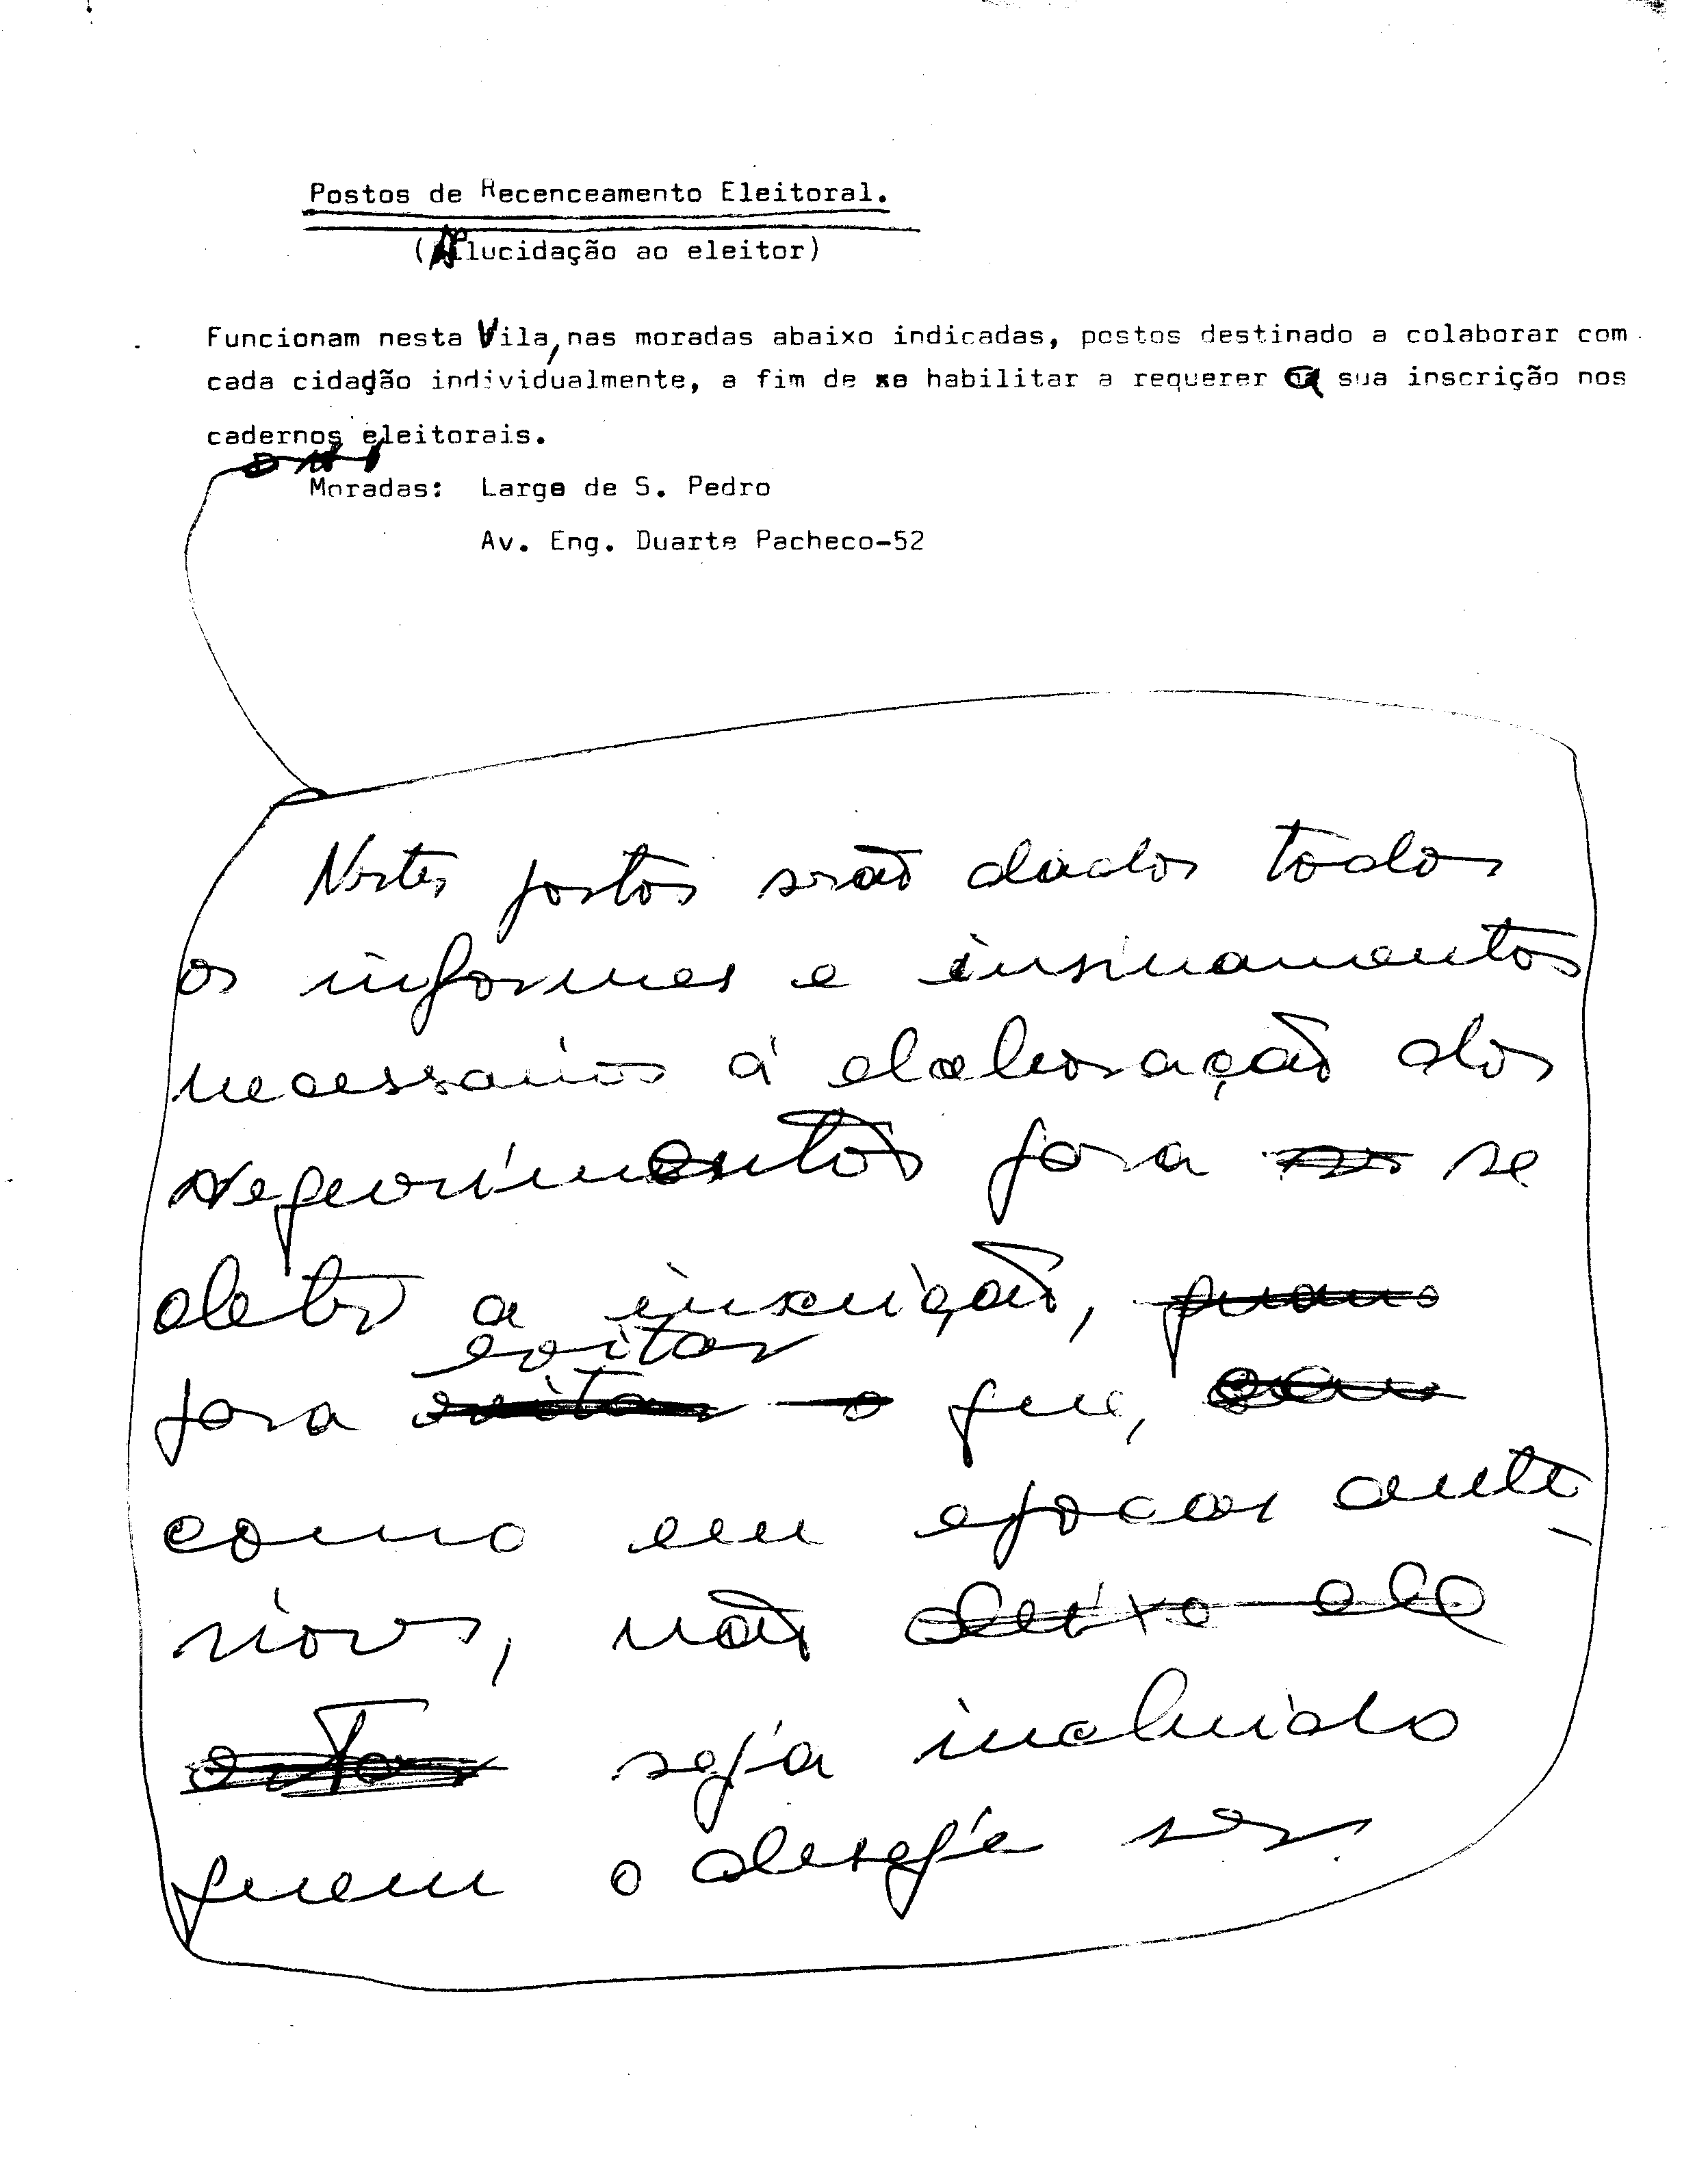 Postos de Recenceamento Eleitoral.
(Elucidação ao eleitor)
Funcionam nesta Vila, nas moradas abaixo indicadas, postos destinado a colaborar com
cada cidadão individualmente, a fim de se habilitar a requerer a sua inscrição nos
cadernos eleitorais.
Moradas: Largo de S. Pedro
Av. Eng. Duarte Pacheco-52
Nestes postos serão dados todos
os informes e ensinamentos
necessarios á elaboração dos
requerimentos para se
obter a inscrição,
evitar
para que,
como em epocas ante
riores, não deixe de
seja incluido
quem o deseje ser